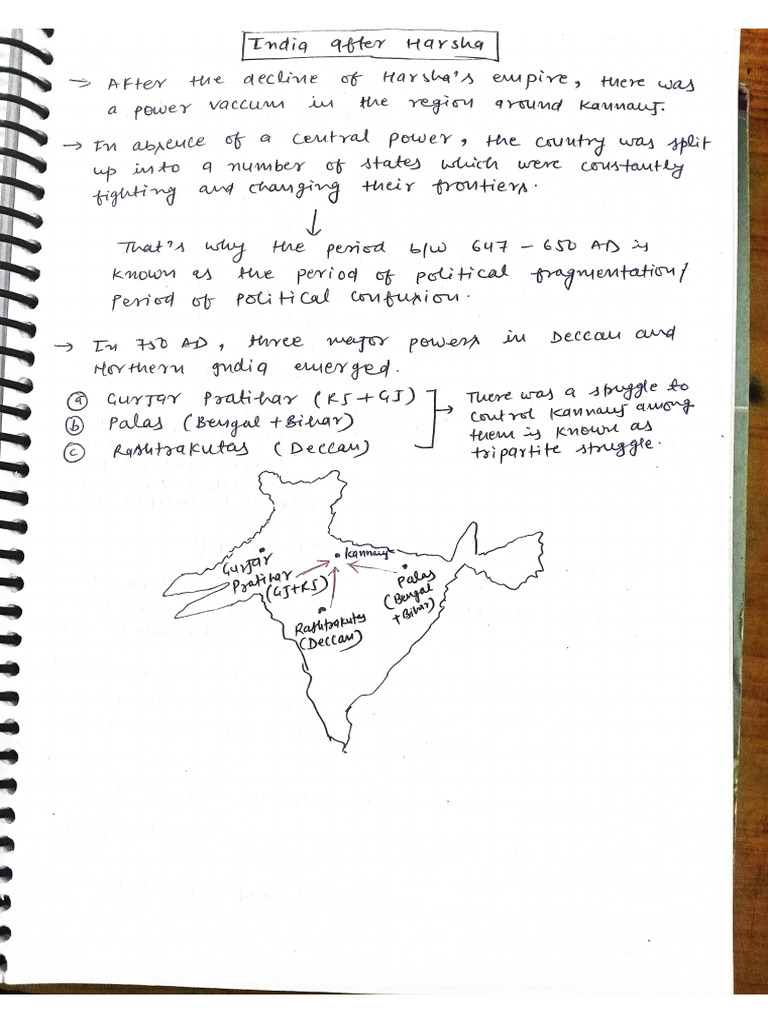 India after Harsha
→ After the decline of Harsha's empire, there was
a power vaccum in the region around Kannauj.
→ In absence of a central power, the country was split
up into a number of states which were constantly
fighting and changing their frontiers.
↓
That's why the period b/w 647 - 650 AD is
known as the period of political fragmentation/
Period of political confusion.
→ In 750 AD, three major powers in Deccan and
Northern India emerged.
(a) Gurjar Pratihar (RJ + GJ)
(b) Palas (Bengal + Bihar)
(c) Rashtrakutas (Deccan)
→ There was a struggle to
control Kannauj among
them is known as
tripartite struggle.
Kannauj
Gurjar
Pratihar
(GJ+RJ)
Palas
(Bengal
+ Bihar)
Rashtrakutas
(Deccan)